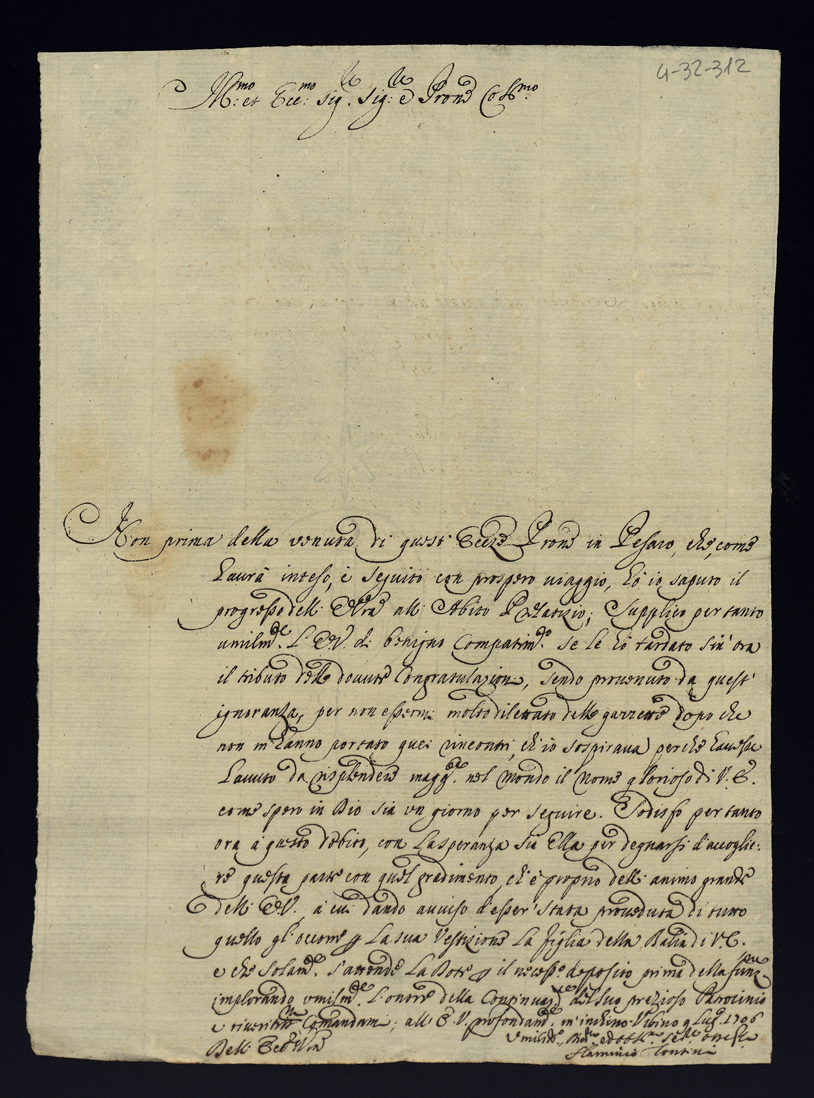 4-32-312
Ill:mo et Ecc:mo Sig:re Sig:re e Prone Col:mo
Non prima della venuta di questi Ecc:mi Proni in Pesaro, che, come
havrà inteso, è seguito con prospero viaggio, hò io saputo il
progresso dell' all' Abito Prelatizio; Supplico per tanto
umilm:te L'E.V. di benigno Compatim:to se le hò tardato sin' ora
il tributo delle dovute Congratulazioni, sendo provenuto da quest'
ignoranza, per non essermi molto dilettato delle gazzette dopo che
non m'hanno portato quei rincontri, ch'io sospirava perche havesse
havuto da risplendere magg:te nel Mondo il Nome glorioso di V.E.
come spero in Dio sia un giorno per seguire. Sodisfo per tanto
ora à questo debito, con la speranza sia Ella per degnarsi d'accoglie:
re questa parte con quel gradimento, ch'è proprio dell' animo grande
dell' E.V. à cui dando avviso d'esser stata proveduta di tutto
quello gl' occorre p la sua Vestizione la figlia della Balia di V.E.
e che solam:te s'attende la Dote p il necess:o deposito prima della funz:ne
implorando umilm:te l'onore della Continuaz:ne del suo prezioso Patrocinio
e riveritiss:mi Comandam:ti; all' E.V. profondam:te m'inchino Urbino 9 Lug:o 1706
Dell' Ecc:za V:ra
Flaminio